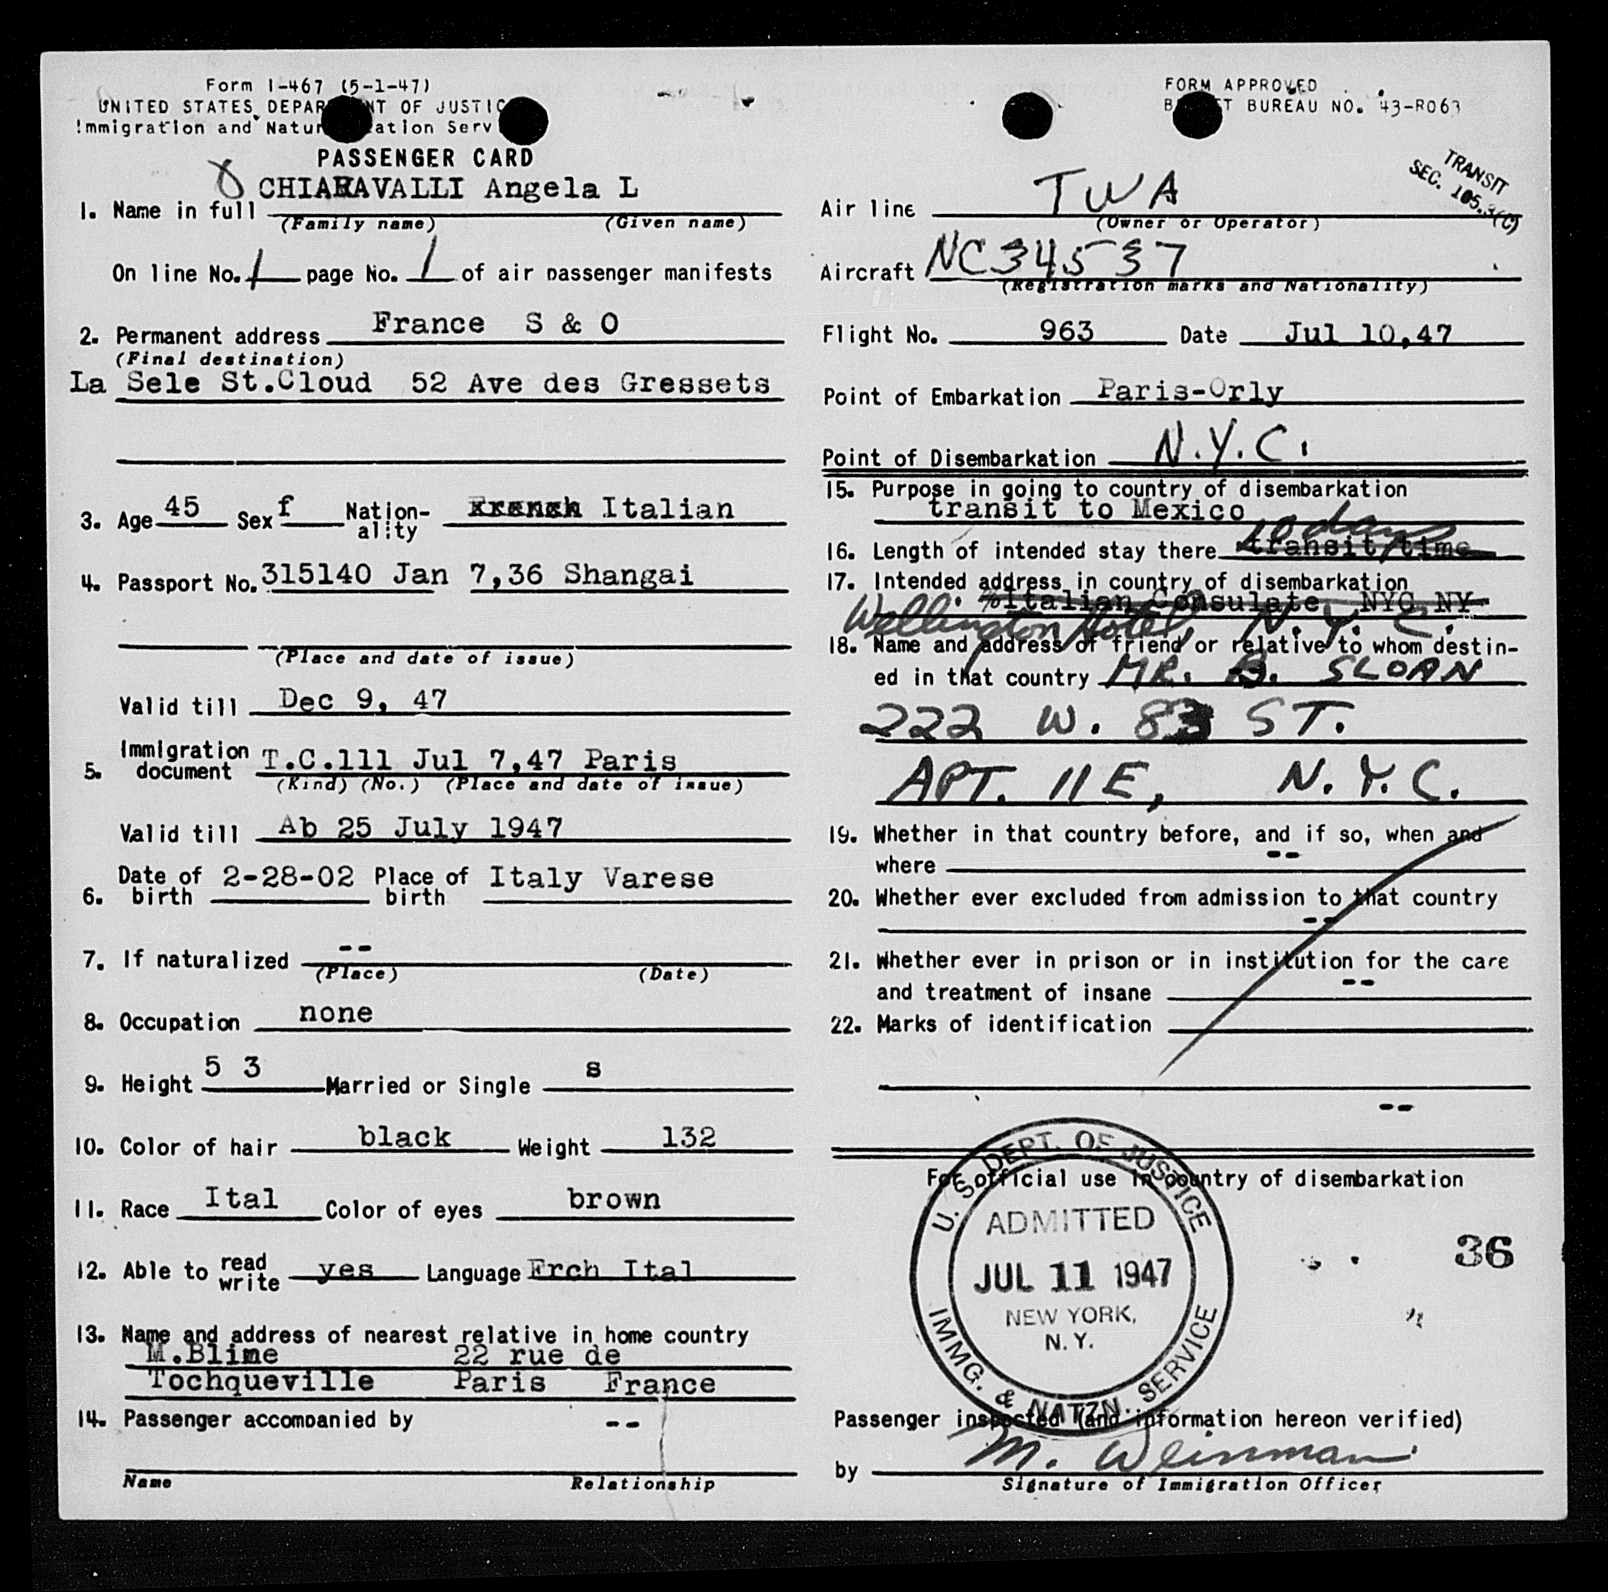 Form I-467 (5-1-47)
UNITED STATES
Immigration and
PASSENGER CARD
CHIARAVALLI Angela L
1. Name in full
(Family name) (Given name)
On line No. 1 page No. 1 of air passenger manifests
2. Permanent address France S & O
(Final destination)
La Sele St.Cloud 52 Ave des Gressets
3. Age 45 Sex f Nation-ality French Italian
4. Passport No. 315140 Jan 7,36 Shangai
(Place and date of issue)
Valid till Dec 9, 47
5. Immigration document T.C.111 Jul 7,47 Paris
(Kind) (No.) (Place and date of issue)
Valid till Ab 25 July 1947
6. Date of birth 2-28-02 Place of birth Italy Varese
7. If naturalized --
(Place) (Date)
8. Occupation none
9. Height 5 3 Married or Single s
10. Color of hair black Weight 132
11. Race Ital Color of eyes brown
12. Able to read write yes Language Frch Ital
13. Name and address of nearest relative in home country
M.Blime 22 rue de
Tochqueville Paris France
14. Passenger accompanied by --
Name Relationship
FORM APPROVED
BUREAU NO. 43-R063
TRANSIT
SEC. 105.3(C)
Air line TWA
(Owner or Operator)
Aircraft NC34537
(Registration marks and Nationality)
Flight No. 963 Date Jul 10,47
Point of Embarkation Paris-Orly
Point of Disembarkation N.Y.C.
15. Purpose in going to country of disembarkation
transit to Mexico
16. Length of intended stay there transit/time 10 days
17. Intended address in country of disembarkation
%Italian Consulate NYC NY
Wellington Hotel, N.Y.C.
18. Name and address of friend or relative to whom destin-
ed in that country MR. B. SLOAN
222 W. 83 ST.
APT. 11E, N.Y.C.
19. Whether in that country before, and if so, when and
where --
20. Whether ever excluded from admission to that country
--
21. Whether ever in prison or in institution for the care
and treatment of insane --
22. Marks of identification
--
For official use in country of disembarkation
U. S. DEPT. OF JUSTICE
ADMITTED
JUL 11 1947
NEW YORK,
N. Y.
IMMG. & NATZN. SERVICE
36
Passenger inspected (and information hereon verified)
by M. Weinman
Signature of Immigration Officer